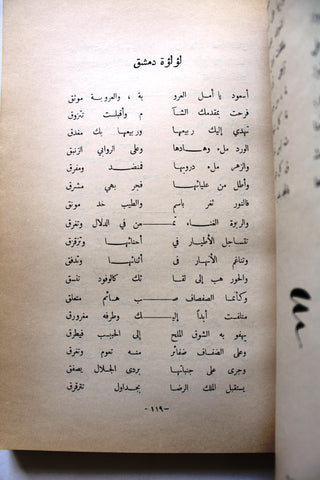 لؤلؤة دمشق
أسعود يا أمل العرو بة ، والعروبة موثق
فرحت بمقدمك الشآ م وأقبلت تتزوق
تهدي إليك ربيعها وربيعها بك مغدق
الورد ملء وهادها وعلى الروابي الزنبق
والزهر ملء دروبها فمنضد ومفرق
وأطل من عليائها فجر بهي مشرق
فالنور ثغر باسم والطيب خد مونق
والربوة الغناء تمـ ـعن في الدلال وتغرق
تتساجل الأطيار في أحنائها وتزقزق
وتناغم الأنهار في أثنائها وتدفق
والحور هب إلى لقا ئك كالوفود تنسق
وكأنما الصفصاف صـب هائم متعلق
متلفت أبداً إليـك وطرفه مغرورق
يهفو به الشوق الملح إلى الحبيب فيطرق
وعلى الضفاف ضفائر منه تعوم وتغرق
وجرى على جنباتها بردى الجلال يصفق
يستقبل الملك الرضا بجداول تترقرق
-١١٩-